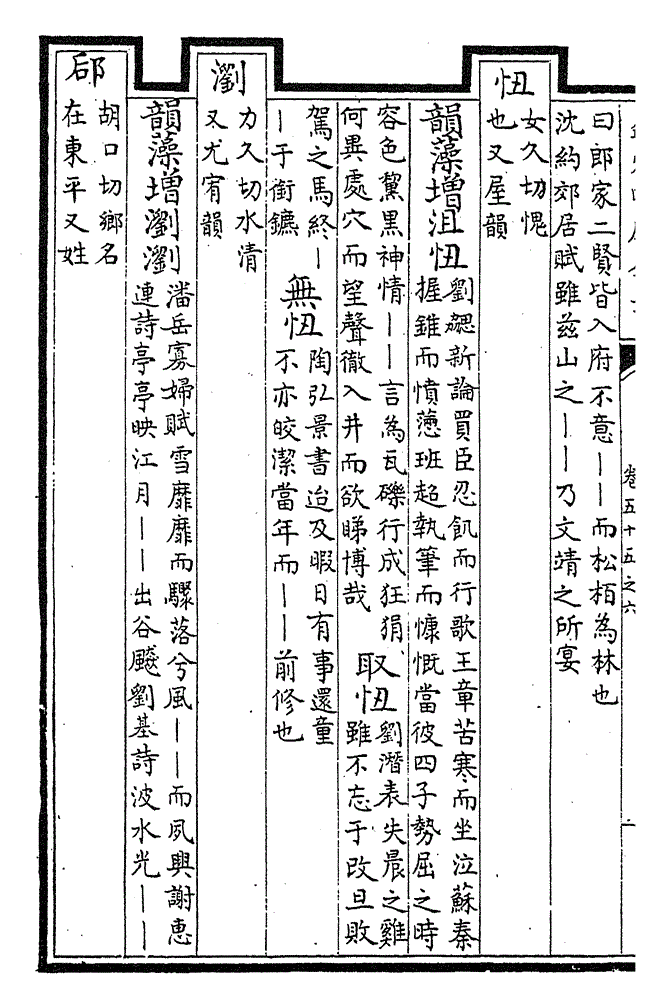 卷五十五之六
曰郎家二賢皆入府不意丨丨而松栢為林也
沈約郊居賦雖兹山之丨丨乃文靖之所宴
忸
女久切愧
也又屋韻
韻藻增沮忸
劉勰新論買臣忍飢而行歌王章苦寒而坐泣蘇秦
握錐而憤懣班超執筆而慷慨當彼四子勢屈之時
容色黧黒神情丨丨言為瓦礫行成狂狷
何異處穴而望聲徹入井而欲睇博哉
取忸
劉潛表失晨之雞
雖不忘于改旦敗
駕之馬終丨
丨于銜鑣
無忸
陶弘景書迨及暇日有事還童
不亦皎潔當年而丨丨前修也
瀏
力久切水清
又尤宥韻
韻藻增瀏瀏
潘岳寡婦賦雪靡靡而驟落兮風丨丨而夙興謝惠
連詩亭亭映江月丨丨出谷飇劉基詩波水光丨丨
郈
胡口切鄉名
在東平又姓